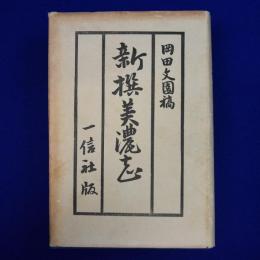 岡田文園稿
新撰美濃志
一信社版